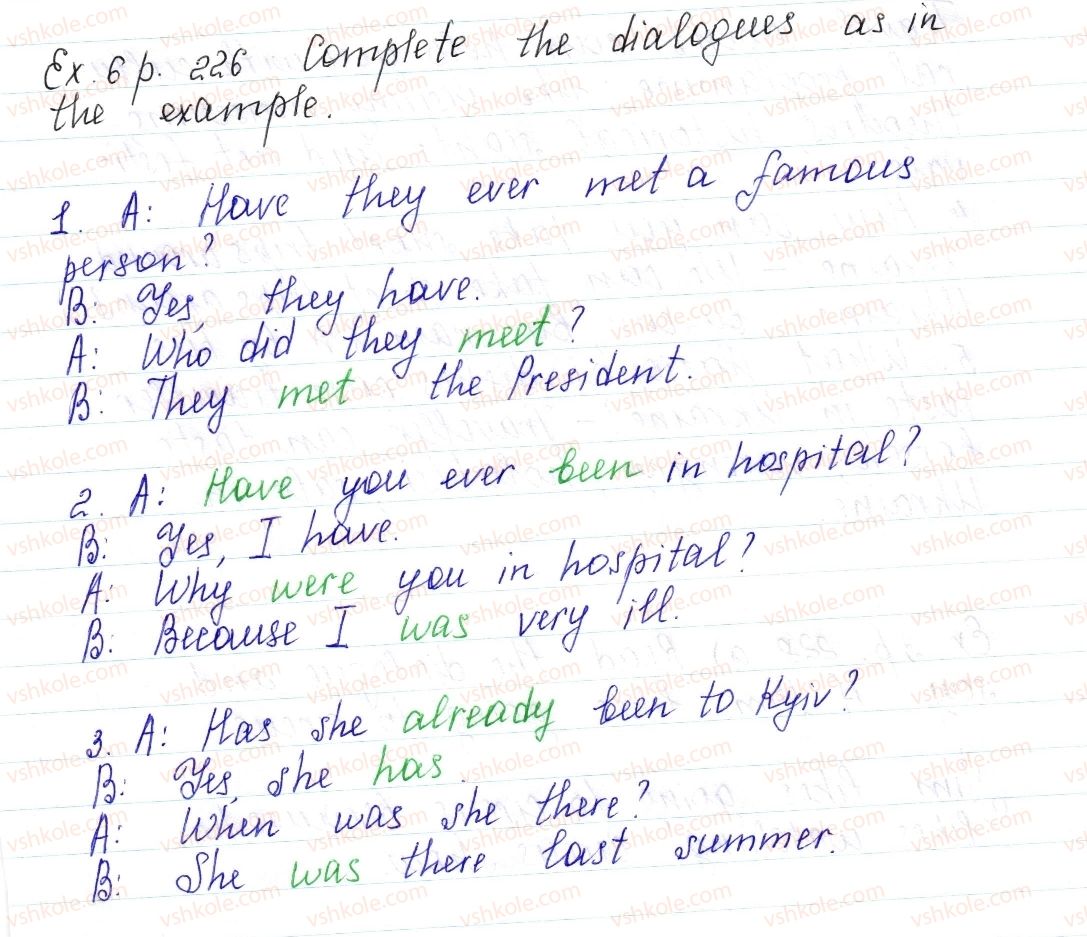 Ex. 6 p. 226 Complete the dialogues as in
the example.
1. A: Have they ever met a famous
person?
B: Yes, they have.
A: Who did they meet?
B: They met the President.
2. A: Have you ever been in hospital?
B: Yes, I have.
A: Why were you in hospital?
B: Because I was very ill.
3. A: Has she already been to Kyiv?
B: Yes, she has.
A: When was she there?
B: She was there last summer.
vshkole.com